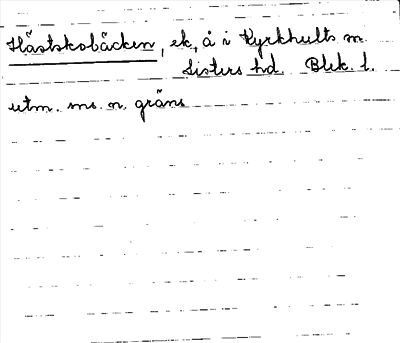 Hästskobäcken, ek, å i Kyrkhults sn
Listers hd Blek. l.
utm. sns. n. gräns